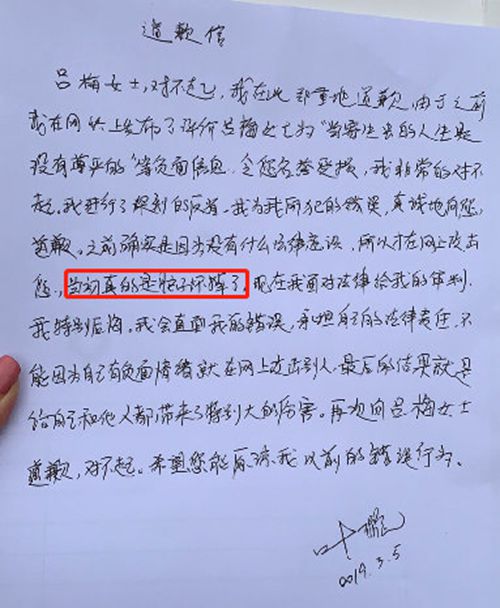 道歉信
吕梅女士，对不起，我在此郑重地道歉，由于之前
我在网站上发布了评价吕梅女士为“当寄生虫的人生是
没有尊严的”等负面信息，令您名誉受损，我非常的对不
起，我进行了深刻的反省，我为我所犯的错误，真诚地向您
道歉。之前确实是因为没有什么法律意识，所以才在网上攻击
您，当初真的是脑子坏掉了，现在我面对法律给我的审判，
我特别后悔。我会直面我的错误，承担自己的法律责任，不
能因为自己有负面情绪就在网上攻击别人，最后的结果就是
给自己和他人都带来了特别大的伤害。再次向吕梅女士
道歉，对不起。希望您能原谅我以前的错误行为。
叶
2019.3.5